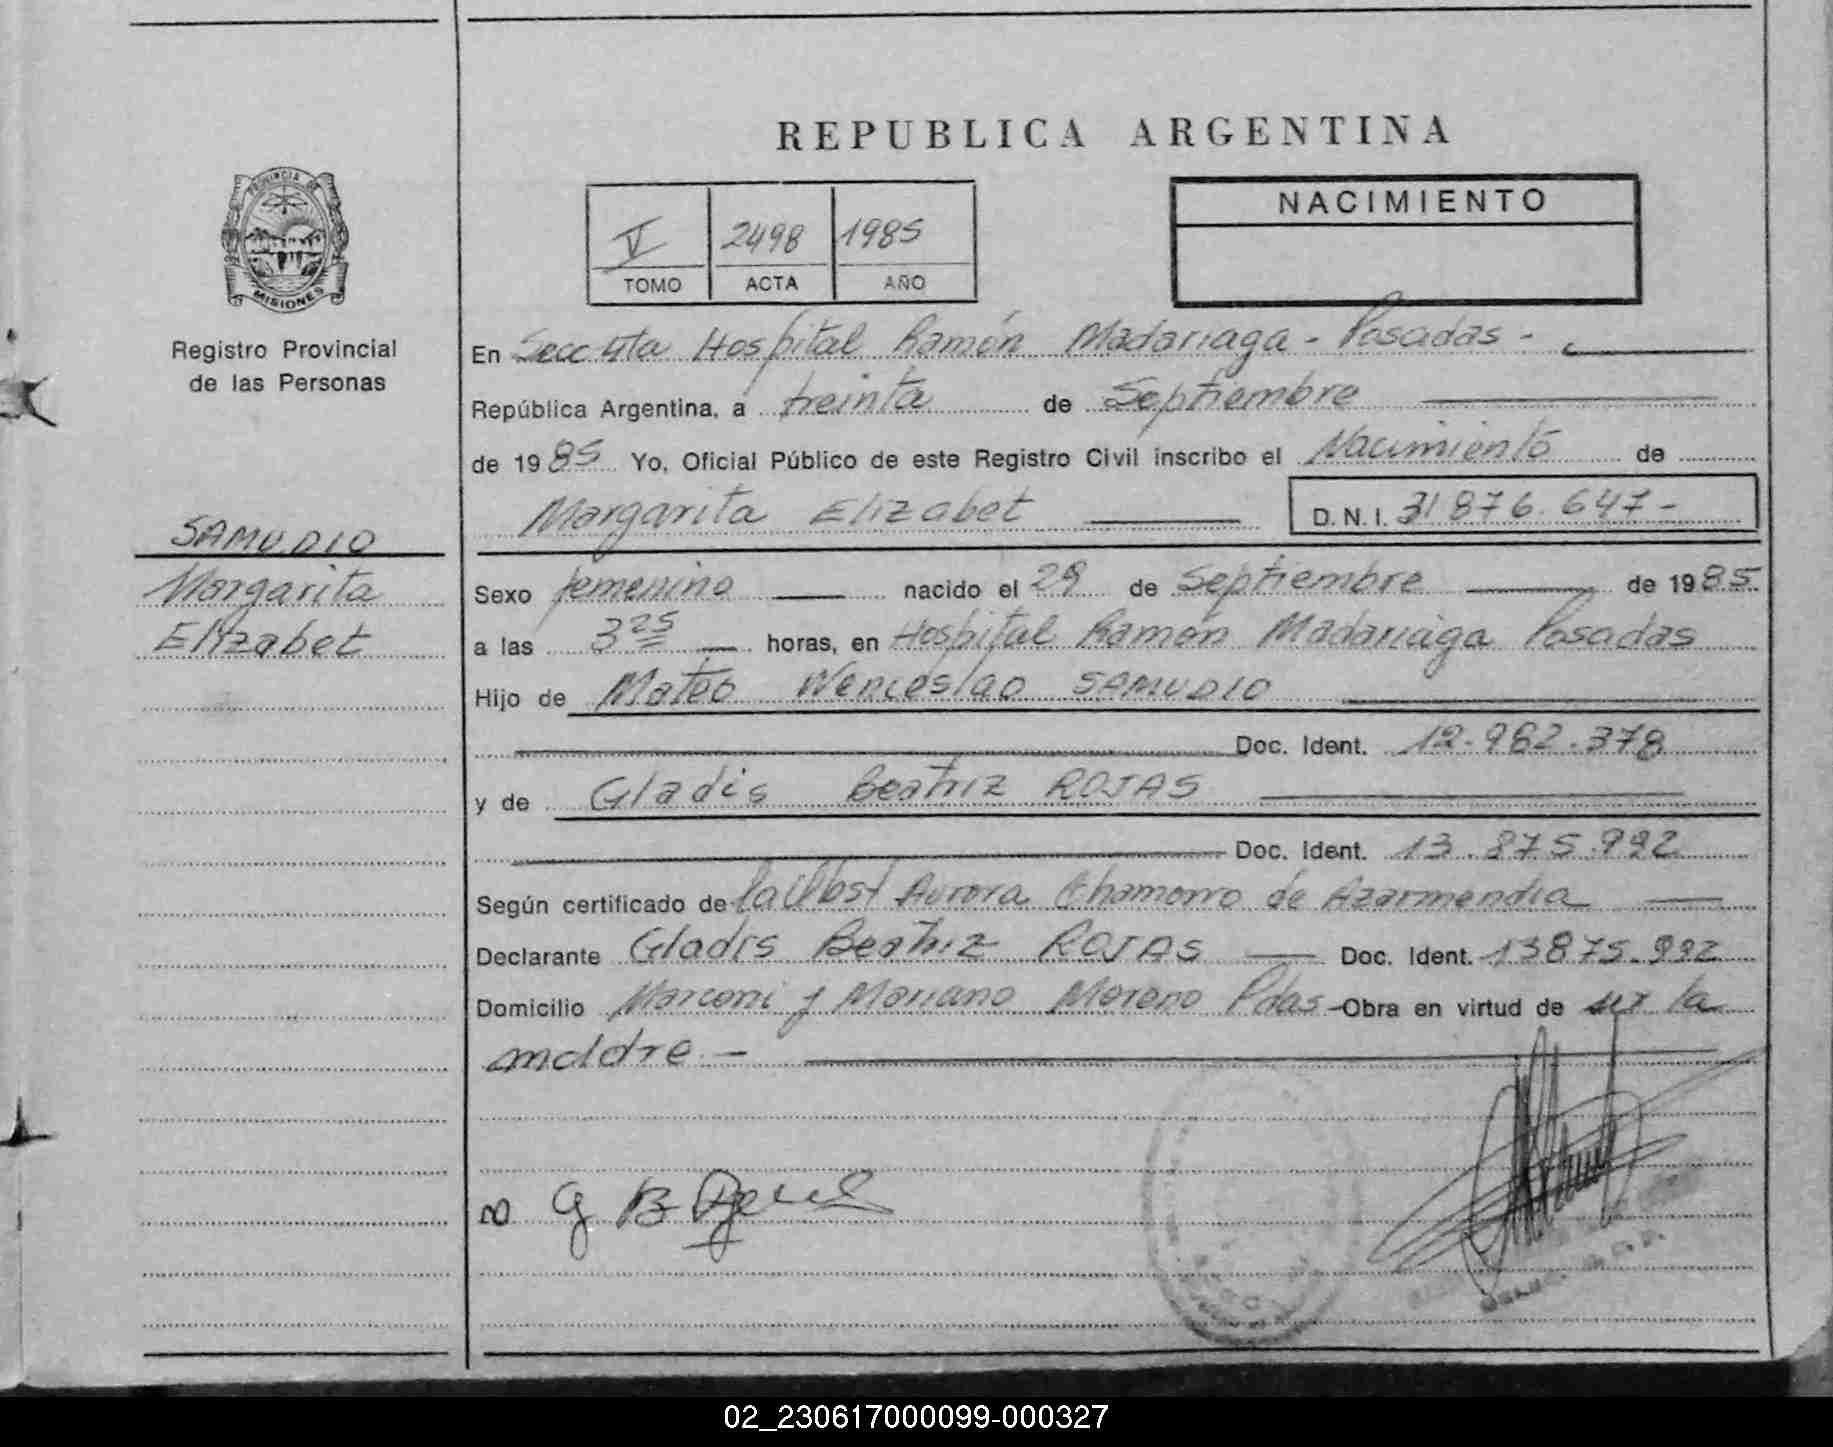 REPUBLICA ARGENTINA
PROVINCIA DE
MISIONES
Registro Provincial
de las Personas
V 2498 1985
TOMO ACTA AÑO
NACIMIENTO
En Secc 4ta Hospital Ramón Madariaga - Posadas -
República Argentina, a treinta de Septiembre
de 1985 Yo, Oficial Público de este Registro Civil inscribo el Nacimiento de
Margarita Elizabet D.N.I. 31 876.647-
SAMUDIO
Margarita
Elizabet
Sexo femenino nacido el 29 de Septiembre de 1985.
a las 3 25 horas, en Hospital Ramón Madariaga Posadas
Hijo de Mateo Wenceslao SAMUDIO
Doc. Ident. 12.962.378
y de Gladis Beatriz ROJAS
Doc. Ident. 13.875.992
Según certificado de Aurora Chamorro de Azarmendia
Declarante Gladis Beatriz ROJAS Doc. Ident. 13875.992
Domicilio Marconi y Mariano Moreno Pdas - Obra en virtud de ser la
madre -
G B
02_230617000099-000327